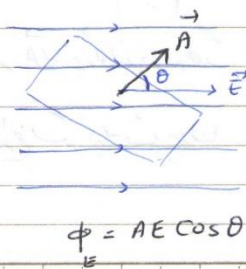 A⃗
θ
E⃗
ϕ_E = AE Cosθ